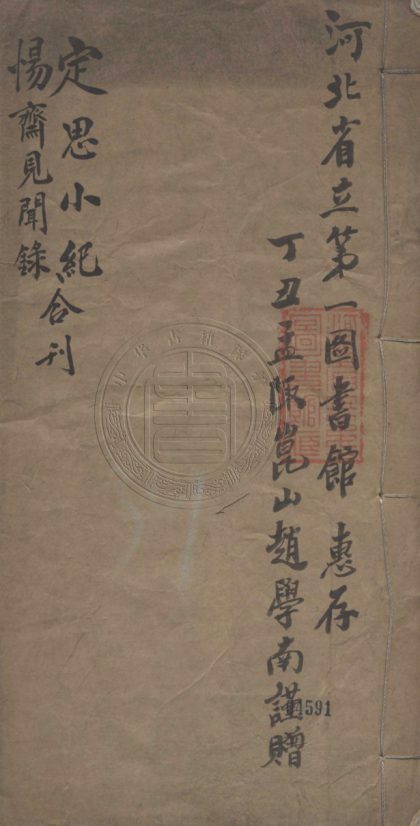 河北省立第一圖書館 惠存
丁丑孟陬崑山趙學南謹贈
定思小紀
惕齋見聞錄
合刊
4591